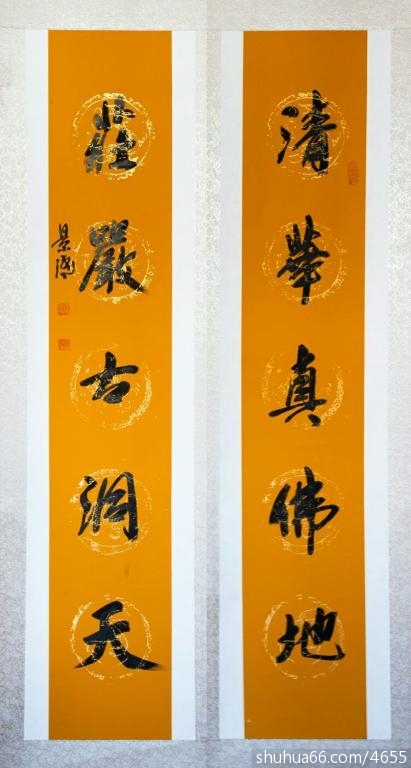 清華真佛地
莊嚴古洞天
景區
shuhua66.com/4655